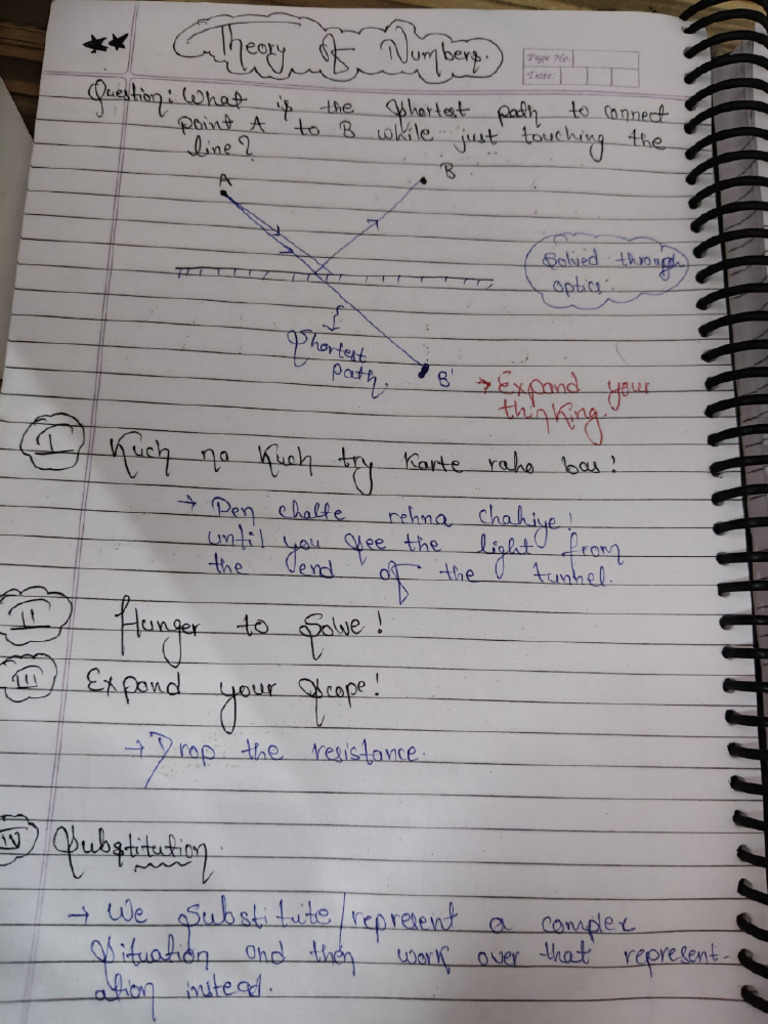 Theory of Numbers.
Page No.
Date:
Question: What is the shortest path to connect
point A to B while just touching the
line?
A
B
Solved through
optics.
Shortest
path.
B'
→ Expand your
thinking.
I Kuch na Kuch try Karte raho bas!
→ Pen chalte rehna chahiye!
until you see the light from
the end of the tunnel.
II Hunger to Solve!
III Expand your Scope!
→ Drop the resistance.
IV Substitution.
→ We Substitute/represent a complex
Situation and then work over that represent-
ation instead.